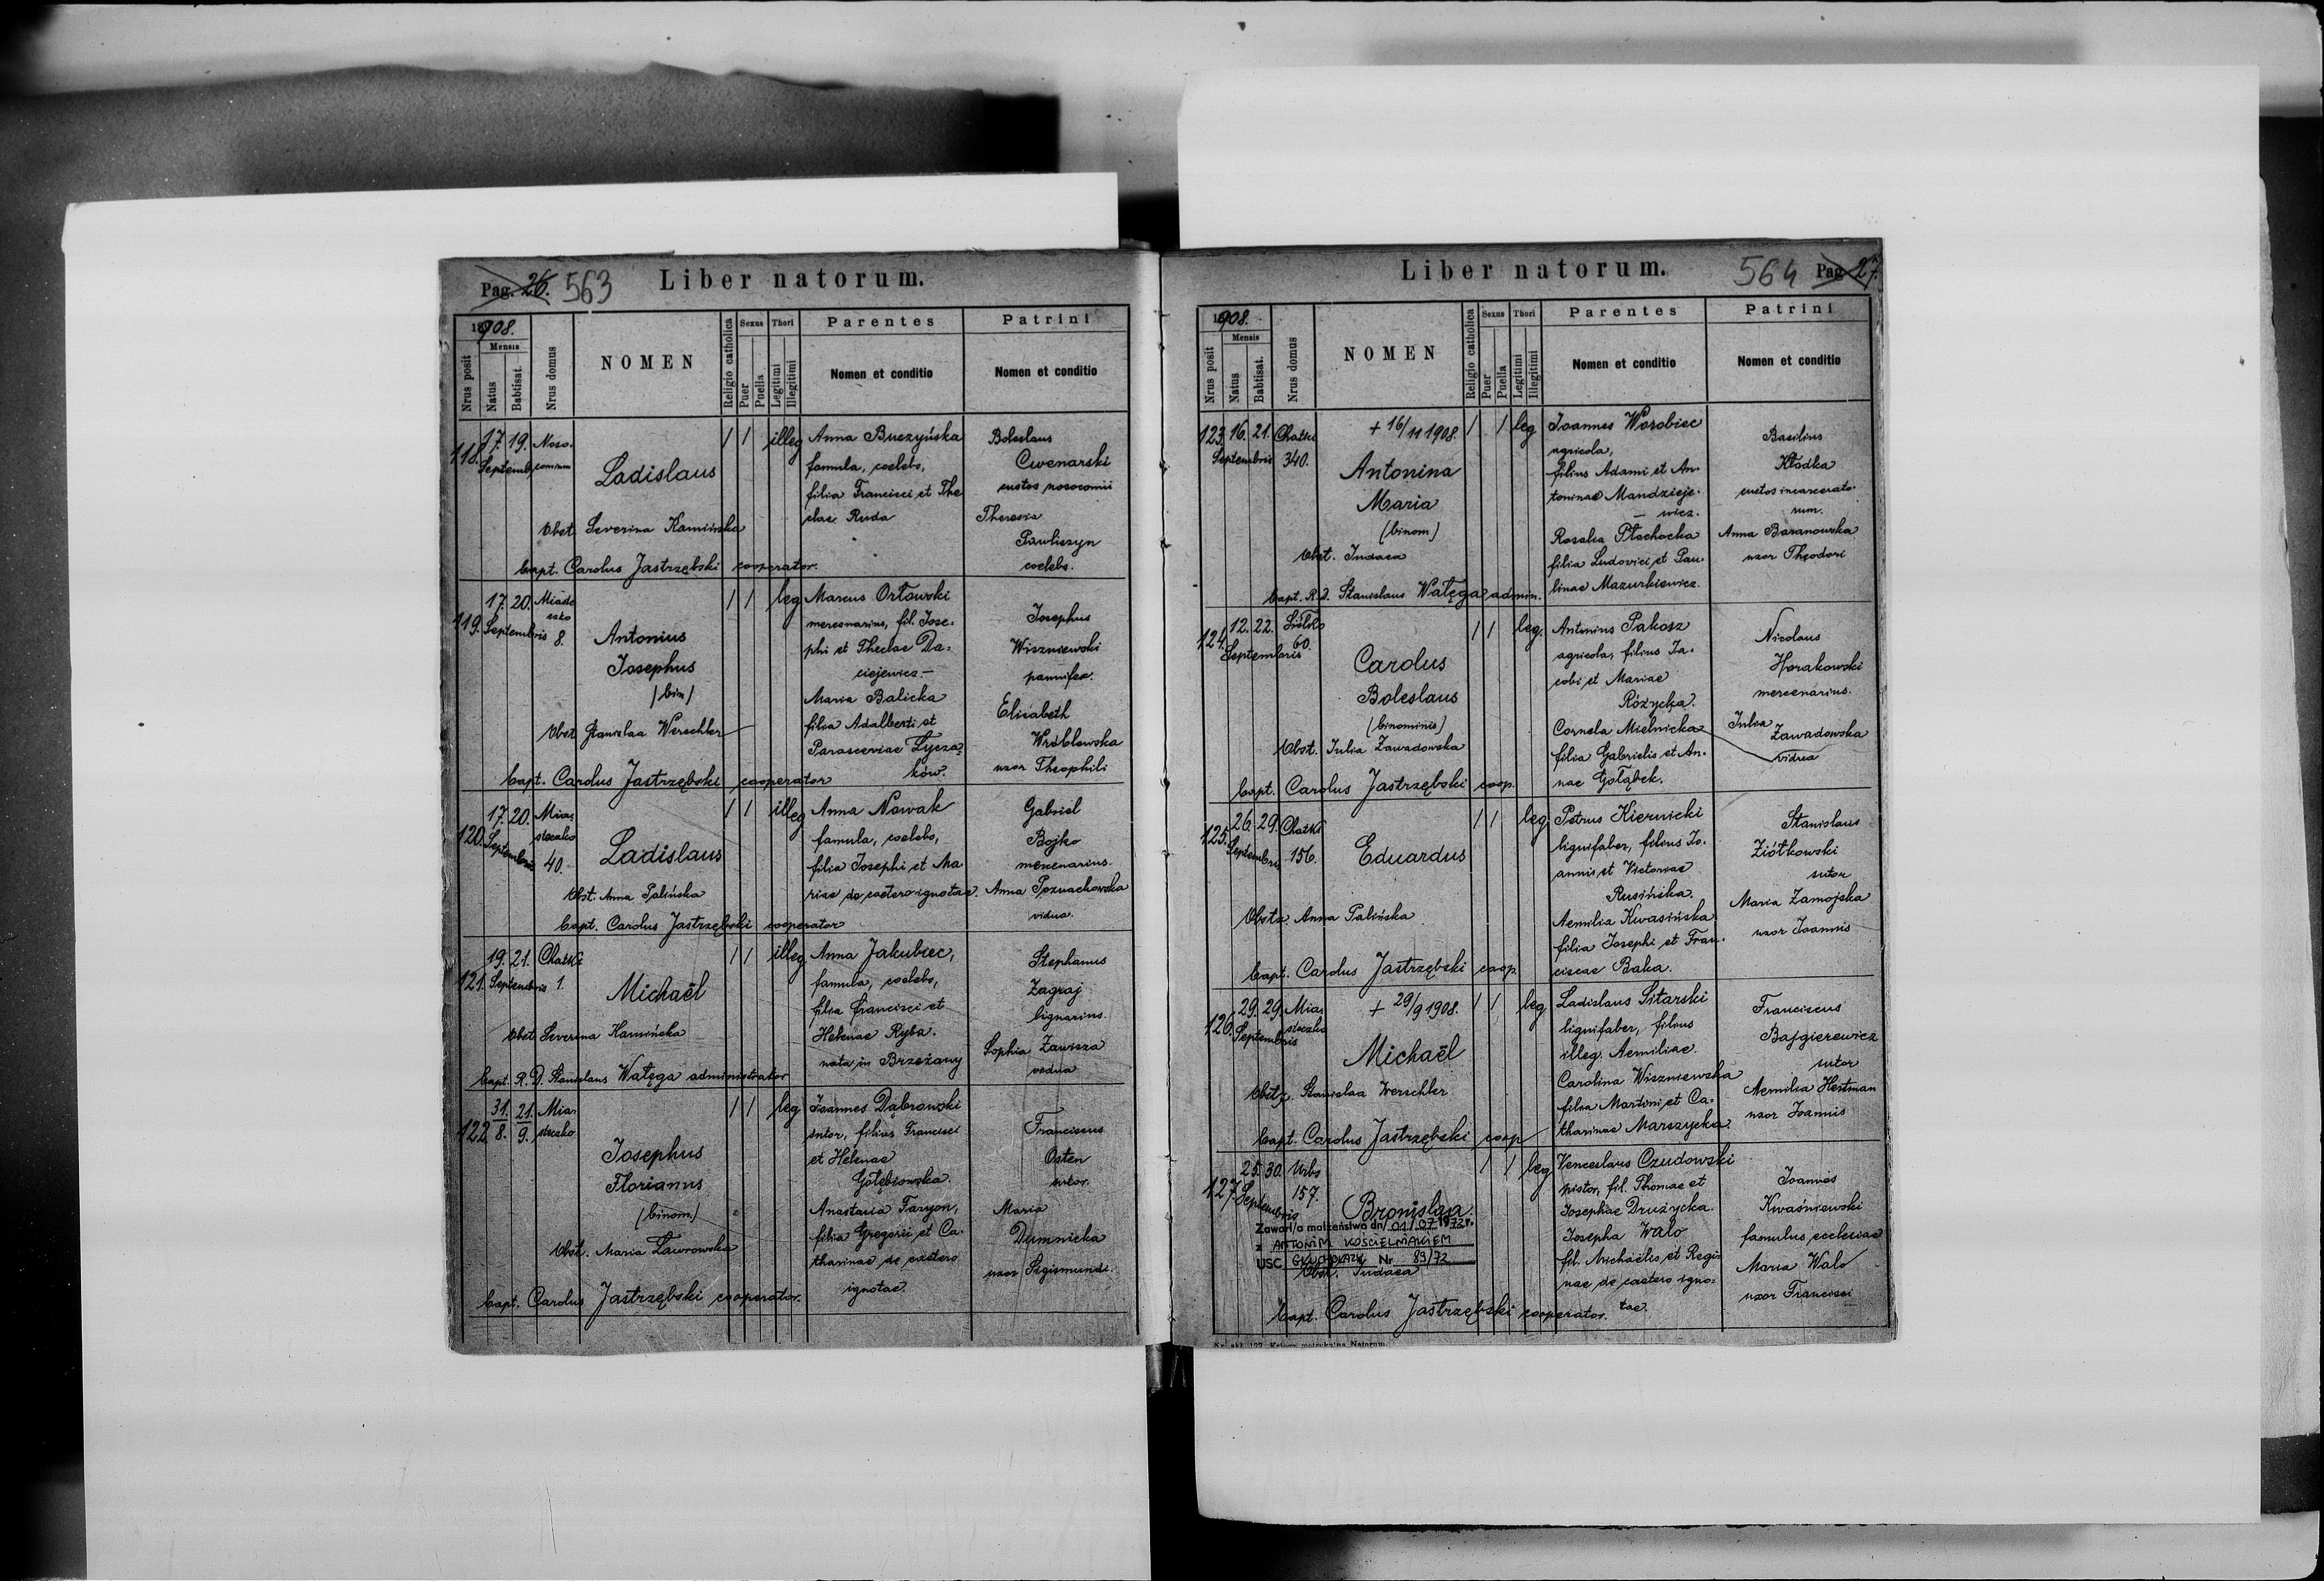 Pag. 26. 563 Liber natorum.
1908.
Mensis
Nrus posit
Natus
Babtisat.
Nrus domus
NOMEN
Religio catholica
Sexus
Puer
Puella
Thori
Legitimi
Illegitimi
Parentes
Nomen et conditio
Patrini
Nomen et conditio
118. 17. 19. Noso- / / illeg Anna Buczyńska Boleslaus
Septemb. comium Ladislaus famula, coelebs, Cwenarski
filia Francisci et The custos nosocomii
clae Ruda Theresia
Obst. Severina Kamińska Pawliszyn
Bapt. Carolus Jastrzębski cooperator. coelebs.
119. 17. 20. Miaste / / leg Marcus Orłowski
Septembris czko 8. Antonius mercenarius, fil. Jose- Josephus
Josephus phi et Theclae Da- Wiszniewski
/bin/ ciejewicz - pannifex.
Maria Balicka
Obst Stanislaa Werschler filia Adalberti et Elisabeth
Parasceviae Łycza- Wróblewska
Bapt. Carolus Jastrzębski cooperator ków. uxor Theophili
120. 17. 20. Mia- / / illeg Anna Nowak Gabriel
Septembris steczko Ladislaus famula, coelebs, Bojko
40. filia Josephi et Ma mercenarius.
Obst. Anna Palińska riae de caetero ignotae. Anna Poznachowska
Bapt. Carolus Jastrzębski cooperator vidua.
121. 19. 21. Chatki / / illeg Anna Jakubiec, Stephanus
Septembris 1. Michaël famula, coelebs, Zagraj
filia Francisci et lignarius.
Obst Severina Kamińska Helenae Ryba.
nata in Brzeżany Sophia Zawisza
Bapt. R. D. Stanislaus Wałęga administrator vidua
122 31. 21. Mia- / / leg Joannes Dąbrowski
8. 9. steczko sutor, filius Francisci Franciscus
Josephus et Helenae Osten
Florianus Gołębiowska. sutor.
/binom./ Anastasia Faryon, Maria
Obst. Maria Ławrowska filia Gregorii et Ca- Dumnicka
tharinae de caetero uxor Sigismundi.
Bapt. Carolus Jastrzębski cooperator. ignotae.
Liber natorum. 564 Pag. 27.
1908.
Mensis
Nrus posit
Natus
Babtisat.
Nrus domus
NOMEN
Religio catholica
Sexus
Puer
Puella
Thori
Legitimi
Illegitimi
Parentes
Nomen et conditio
Patrini
Nomen et conditio
123. 16. 21. Chatki + 16/11 1908. / / leg Joannes Worobiec Basilius
Septembris 340. Antonina agricola, Kłódka
filius Adami et An- custos incarcerato-
Maria toninae Mandzieje- rum.
(binom) - wicz. Anna Baranowska
Obst. Judaea Rosalia Płachocka uxor Theodori
filia Ludovici et Pau-
Bapt. R. D. Stanislaus Wałęga admin. linae Mazurkiewicz.
124. 12. 22. Siółko / / leg. Antonius Pakosz Nicolaus
Septembris 60. Carolus agricola, filius Ja- Horakowski
Boleslaus cobi et Mariae mercenarius.
(binominis) Różycka.
Obst. Julia Zawadowska Cornela Mielnicka Julia Zawadowska
filia Gabrielis et An- vidua
Bapt. Carolus Jastrzębski coop. nae Gołąbek.
125. 26. 29. Chatki / / leg Petrus Kiernicki Stanislaus
Septembris 156. Eduardus lignifaber, filius Jo- Ziółkowski
annis et Victoriae sutor
Rusińska. Maria Zamojska
Obstz Anna Palińska Aemilia Kwasińska uxor Joannis
filia Josephi et Fran-
Bapt. Carolus Jastrzębski coop. ciscae Baka.
126. 29. 29. Mia- + 29/9 1908. / / leg Ladislaus Sitarski Franciscus
Septembris steczko lignifaber, filius Bajgierewicz
Michaël illeg. Aemiliae. sutor
Carolina Wiszniewska Aemilia Hertman
Obstz. Stanislaa Werschler filia Martini et Ca- uxor Joannis
Bapt. Carolus Jastrzębski coop tharinae Marszycka.
127. 25. 30. Urbs / / leg Venceslaus Czudowski
Septembris 157. Bronislaa pistor, fil. Thomae et Joannes
Josephae Drużycka. Kwaśniewski
Zawarł/a małżeństwo dn/ 01/07 1972 r. Josepha Walo famulus ecclesiae
z ANTONIM KOŚCIELNIAKIEM
USC GŁUCHOŁAZY Nr 89/72 fil. Michaëlis et Regi- Maria Walo
Obst. Judaea nae de caetero igno- uxor Francisci
Bapt. Carolus Jastrzębski cooperator. tae.